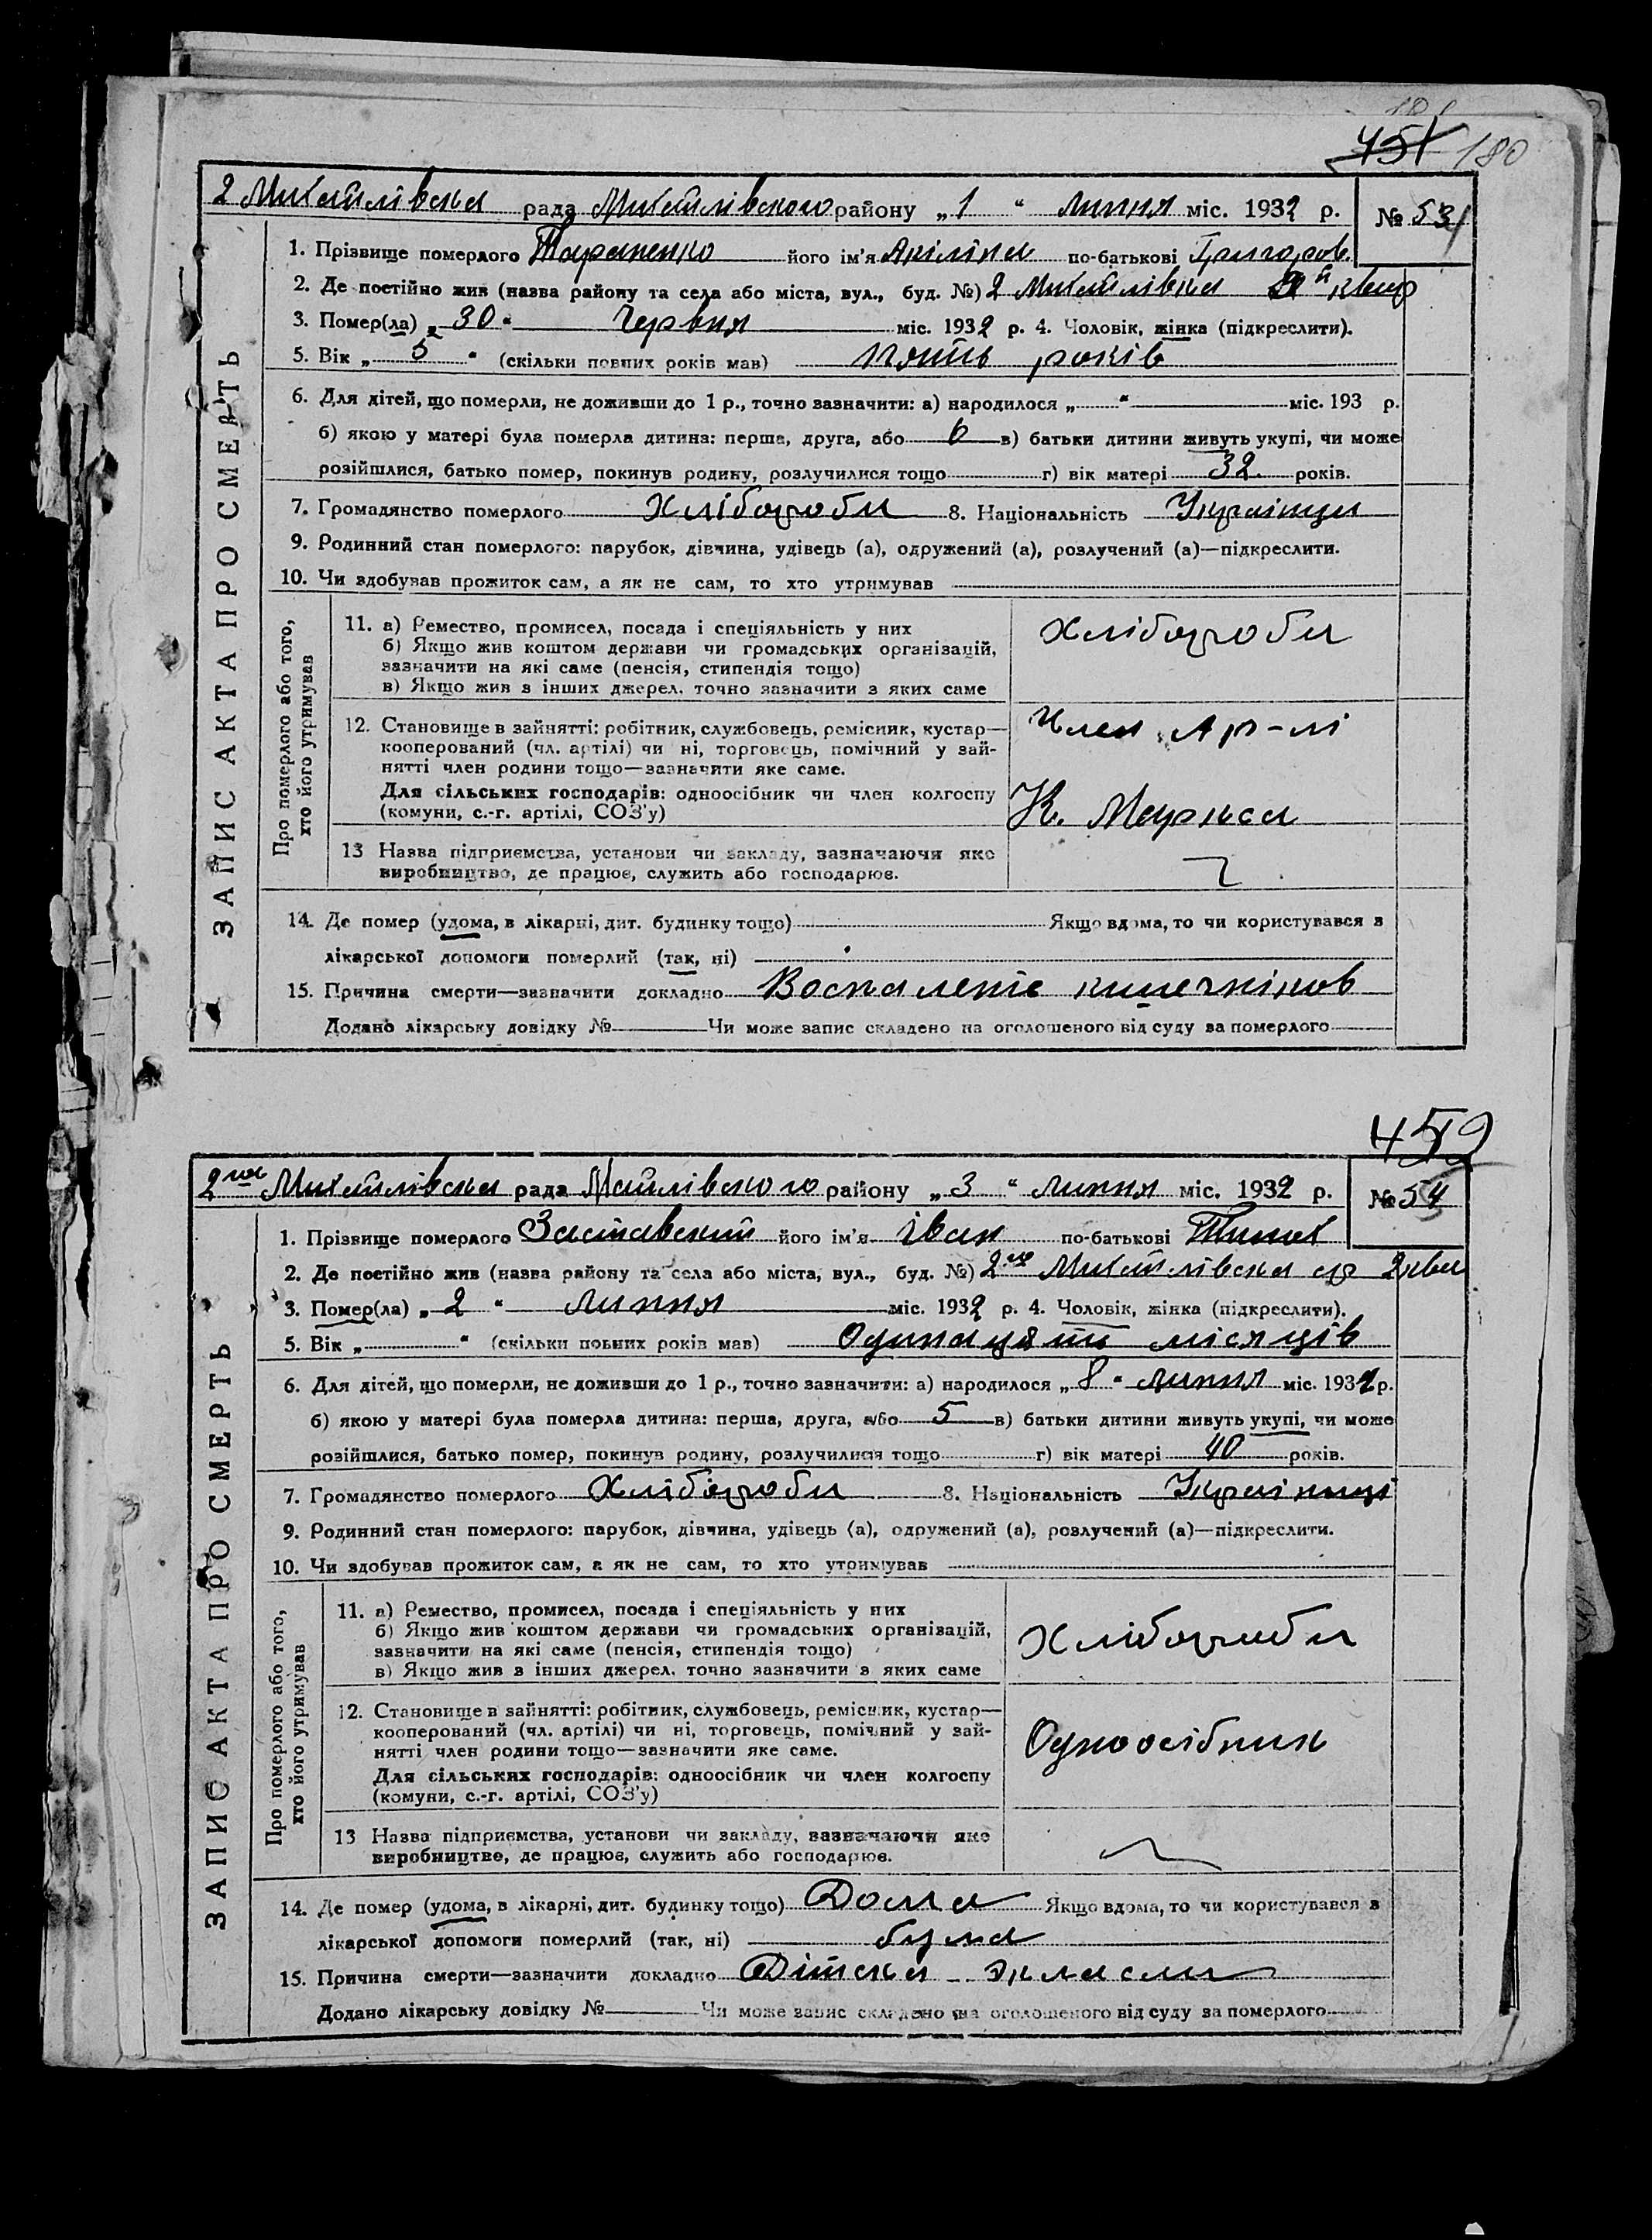 451 180
2 Михайлівська рада Михайлівского району „1“ липня міс. 1932 р. № 53
1. Прізвище померлого Тараненко його ім'я Акіліна по-батькові Григоров.
2. Де постійно жив (назва району та села або міста, вул., буд. №) 2 Михайлівка й квар
3. Помер(ла) „30“ Червня міс. 1932 р. 4. Чоловік, жінка (підкреслити).
5. Вік „5“ (скільки повних років мав) пять років
6. Для дітей, що померли, не доживши до 1 р., точно зазначити: а) народилося „ “ міс. 193 р.
б) якою у матері була померла дитина: перша, друга, або 6 в) батьки дитини живуть укупі, чи може
розійшлися, батько помер, покинув родину, розлучилися тощо г) вік матері 32 років.
7. Громадянство померлого Хлібороби 8. Національність Українци
9. Родинний стан померлого: парубок, дівчина, удівець (а), одружений (а), розлучений (а)—підкреслити.
10. Чи здобував прожиток сам, а як не сам, то хто утримував
ЗАПИС АКТА ПРО СМЕРТЬ
Про померлого або того, хто його утримував
11. а) Ремество, промисел, посада і спеціяльність у них
б) Якщо жив коштом держави чи громадських організацій,
зазначити на які саме (пенсія, стипендія тощо)
в) Якщо жив з інших джерел, точно зазначити з яких саме
Хлібороби
12. Становище в зайнятті: робітник, службовець, ремісник, кустар—
кооперований (чл. артілі) чи ні, торговець, помічний у зай-
нятті член родини тощо—зазначити яке саме.
Для сільських господарів: одноосібник чи член колгоспу
(комуни, с.-г. артілі, СОЗ'у)
Член Ар-лі
К. Маркса
13 Назва підприємства, установи чи закладу, зазначаючи яке
виробництво, де працює, служить або господарює.
14. Де помер (удома, в лікарні, дит. будинку тощо) Якщо вдома, то чи користувався з
лікарської допомоги померлий (так, ні)
15. Причина смерти—зазначити докладно Воспаленіє кишечніков
Додано лікарську довідку № Чи може запис складено на оголошеного від суду за померлого
452
2га Михайлівська рада Майлівського району „3“ липня міс. 1932 р. № 54
1. Прізвище померлого Заставский його ім'я Іван по-батькові Тимоф
2. Де постійно жив (назва району та села або міста, вул., буд. №) 2га Михайлівська ср 2 ква
3. Помер(ла) „2“ липня міс. 1932 р. 4. Чоловік, жінка (підкреслити).
5. Вік „ “ (скільки повних років мав) Одинацять місяців
6. Для дітей, що померли, не доживши до 1 р., точно зазначити: а) народилося „8“ липня міс. 193 р.
б) якою у матері була померла дитина: перша, друга, або 5 в) батьки дитини живуть укупі, чи може
розійшлися, батько помер, покинув родину, розлучилися тощо г) вік матері 40 років.
7. Громадянство померлого Хлібороби 8. Національність Українці
9. Родинний стан померлого: парубок, дівчина, удівець (а), одружений (а), розлучений (а)—підкреслити.
10. Чи здобував прожиток сам, а як не сам, то хто утримував
ЗАПИС АКТА ПРО СМЕРТЬ
Про померлого або того, хто його утримував
11. а) Ремество, промисел, посада і спеціяльність у них
б) Якщо жив коштом держави чи громадських організацій,
зазначити на які саме (пенсія, стипендія тощо)
в) Якщо жив з інших джерел, точно зазначити з яких саме
Хлібороби
12. Становище в зайнятті: робітник, службовець, ремісник, кустар—
кооперований (чл. артілі) чи ні, торговець, помічний у зай-
нятті член родини тощо—зазначити яке саме.
Для сільських господарів: одноосібник чи член колгоспу
(комуни, с.-г. артілі, СОЗ'у)
Одноосібник
13 Назва підприємства, установи чи закладу, зазначаючи яке
виробництво, де працює, служить або господарює.
14. Де помер (удома, в лікарні, дит. будинку тощо) Дома Якщо вдома, то чи користувався з
лікарської допомоги померлий (так, ні) була
15. Причина смерти—зазначити докладно Дітска экламси
Додано лікарську довідку № Чи може запис складено на оголошеного від суду за померлого